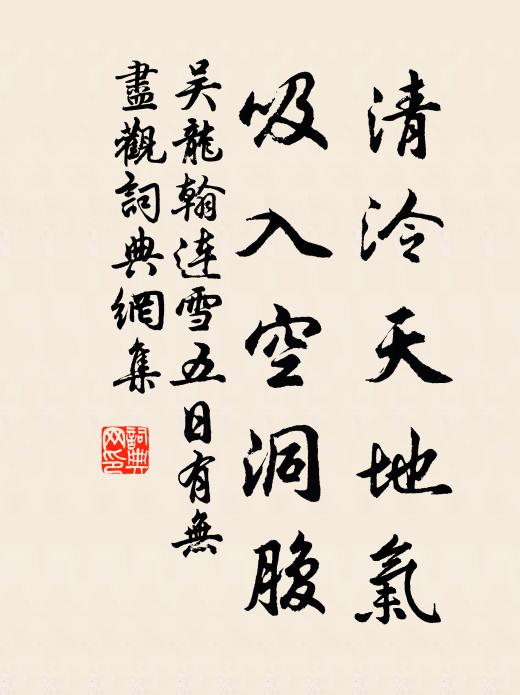 清泠天地氣
吸入空洞腹
吴龍翰连雪五日有無
盡觀詞典網集
詞典
网印